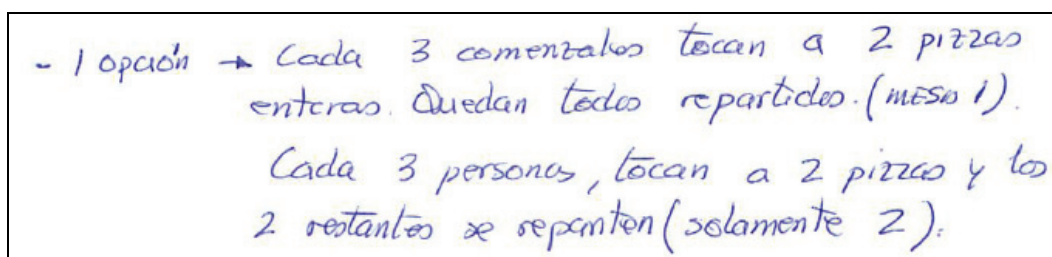 - 1 opción → Cada 3 comenzales tocan a 2 pizzas
enteras. Quedan todas repartidas. (mesa 1).
Cada 3 personas, tocan a 2 pizzas y las
2 restantes se reparten (solamente 2).